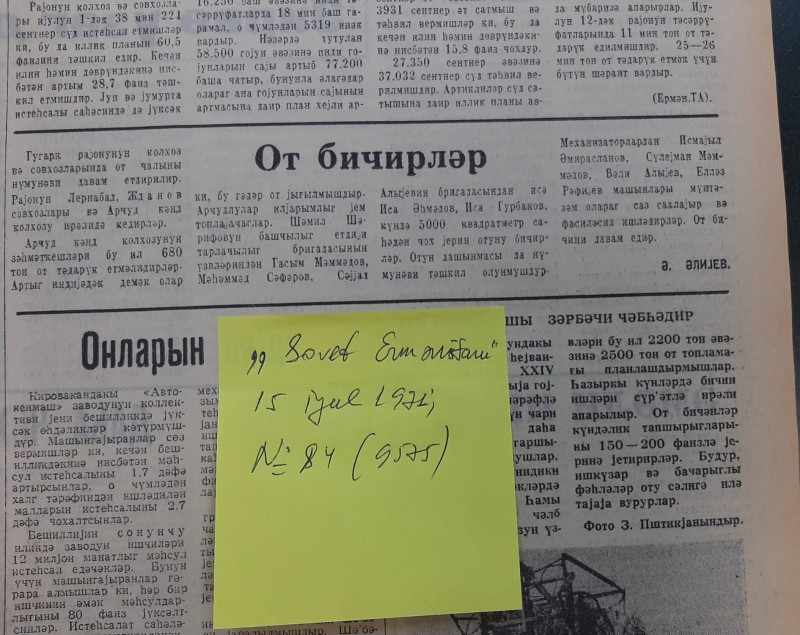 Районун колхоз вә совхозла-
ры ијулун 1-дәк 38 мин 224
сентнер сүд истеһсал етмишләр
ки, бу да иллик планын 60,5
фаизини тәшкил едир. Кечән
илин һәмин дөврүндәкинә нис-
бәтән артым 28,7 фаиз тәш-
кил етмишдир. Јун вә јумурта
истеһсалы саһәсиндә дә јүксәк
16.250 баш әвәзинә
сәрруфатларда 18 мин баш га-
рамал, о ҹүмләдән 5319 инәк
вардыр. Нәзәрдә тутулан
58.500 гојун әвәзинә инди го-
јунларын сајы артыб 77.200
баша чатыр, бунунла әлагәдар
олараг ана гојунларын сајынын
артмасына даир план хејли ар-
3931 сентнер әт сатмыш вә
тәһвил вермишләр ки, бу да
кечән илин һәмин дөврүндәки-
нә нисбәтән 15,8 фаиз чохдур.
27.350 сентнер әвәзинә
37.032 сентнер сүд тәһвил ве-
рилмишдир. Артиклиләр сүд са-
тышына даир иллик планы ав-
да мүбаризә апарырлар. Ију-
лун 12-дәк рајонун тәсәррү-
фатларында 11 мин тон от тә-
дарүк едилмишдир. 25—26
мин тон от тәдарүк етмәк үчүн
бүтүн шәраит вардыр.
(Ермән.ТА).
От бичирләр
Гугарк рајонунун колхоз
вә совхозларында от чалыны
нүмунәви давам етдирилир.
Рајонун Лернабад, Жданов
совхозлары вә Арчуд кәнд
колхозу ирәлидә кедирләр.
Арчуд кәнд колхозунун
зәһмәткешләри бу ил 680
тон от тәдарүк етмәлидирләр.
Артыг индијәдәк демәк олар
ки, бу гәдәр от јығылмышдыр.
Арчудлулар илјарымлыг јем
топлајаҹаглар. Шамил Шә-
рифовун башчылыг етдији
тарлачылыг бригадасынын
үзвләриндән Гасым Мәммәдов,
Мәһәммәд Сәфәров, Сәјјад
Алыјевин бригадасындан исә
Иса Әһмәдов, Иса Гурбанов,
күндә 5000 квадратметр са-
һәдән чох јерин отуну бичир-
ләр. Отун дашынмасы да нү-
мунәви тәшкил олунмушдур
Механизаторлардан Исмајыл
Әмирасланов, Сүлејман Мәм-
мәдов, Вәли Алыјев, Елләз
Рәфијев машынлары мүнтә-
зәм олараг саз сахлајыр вә
фасиләсиз ишләдирләр. От би-
чини давам едир.
Ә. ӘЛИЈЕВ.
Онларын
Кировакандакы «Авто-
кенмаш» заводунун коллек-
тиви јени бешилликдә јүк-
сәк өһдәликләр көтүрмүш-
дүр. Машынгајыранлар сөз
вермишләр ки, кечән беш-
илликдәкинә нисбәтән мәһ-
сул истеһсалыны 1,7 дәфә
артырсынлар, о ҹүмләдән
халг тәрәфиндән ишләдилән
малларын истеһсалыны 2,7
дәфә чохалтсынлар.
Бешиллијин сонунҹу
илиндә заводун ишчиләри
12 милјон манатлыг мәһсул
истеһсал едәҹәкләр. Бунун
үчүн машынгајыранлар гә-
рара алмышлар ки, һәр бир
ишчинин әмәк мәһсулдар-
лығыны 80 фаиз јүксәлт-
синләр. Истеһсалат саһәлә-
„Sovet Ermənistanı“
15 iyul 1971,
№ 84 (9575)
ШЫ ЗӘРБӘЧИ ЧӘБҺӘДИР
ундакы
һејван-
XXIV
ыја гој-
әрәфлә
үн чары
даһа
гаршы-
ушлар.
нидики
әкләрдә
Һамы
чәлб
зун үз-
вләри бу ил 2200 тон әвә-
зинә 2500 тон от топлама-
ғы планлашдырмышлар.
Һазыркы күнләрдә бичин
ишләри сүр'әтлә ирәли
апарылыр. От бичәнләр
күндәлик тапшырыглары-
ны 150—200 фаизлә је-
ринә јетирирләр. Будур,
ишкүзар вә баҹарыглы
фәһләләр оту сәлигә илә
тајаја вурурлар.
Фото З. Пштикјанындыр.